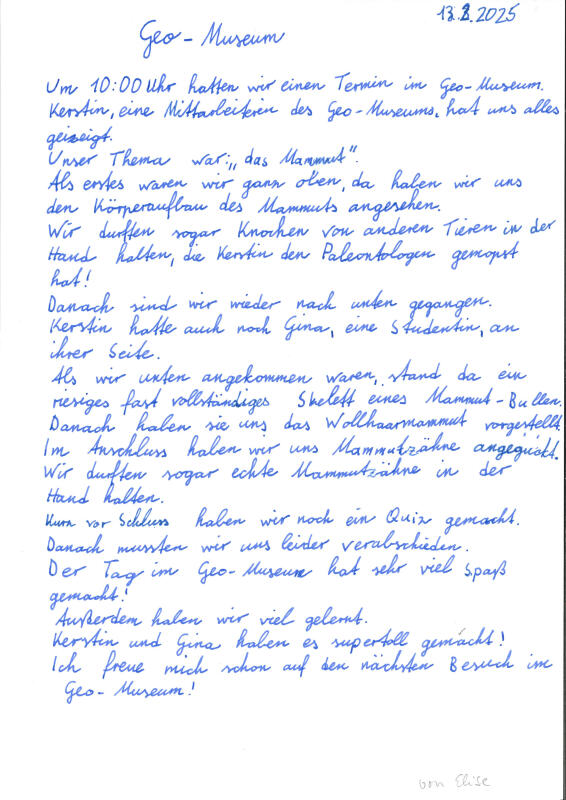 13.2.2025
Geo-Museum
Um 10:00 Uhr hatten wir einen Termin im Geo-Museum.
Kerstin, eine Mittarbeiterin des Geo-Museums, hat uns alles
geizeigt.
Unser Thema war: „das Mammut".
Als erstes waren wir ganz oben, da haben wir uns
den Körperaufbau des Mammuts angesehen.
Wir durften sogar Knochen von anderen Tieren in der
Hand halten, die Kerstin den Paleontologen gemopst
hat!
Danach sind wir wieder nach unten gegangen.
Kerstin hatte auch noch Gina, eine Studentin, an
ihrer Seite.
Als wir unten angekommen waren, stand da ein
riesiges fast vollständiges Skelett eines Mammut-Bullen.
Danach haben sie uns das Wollhaarmammut vorgestellt.
Im Anschluss haben wir uns Mammutzähne angegückt.
Wir durften sogar echte Mammutzähne in der
Hand halten.
Kurz vor Schluss haben wir noch ein Quiz gemacht.
Danach mussten wir uns leider verabschieden.
Der Tag im Geo-Museum hat sehr viel Spaß
gemacht!
Außerdem haben wir viel gelernt.
Kerstin und Gina haben es supertoll gemacht!
Ich freue mich schon auf den nächsten Besuch im
Geo-Museum!
von Elise